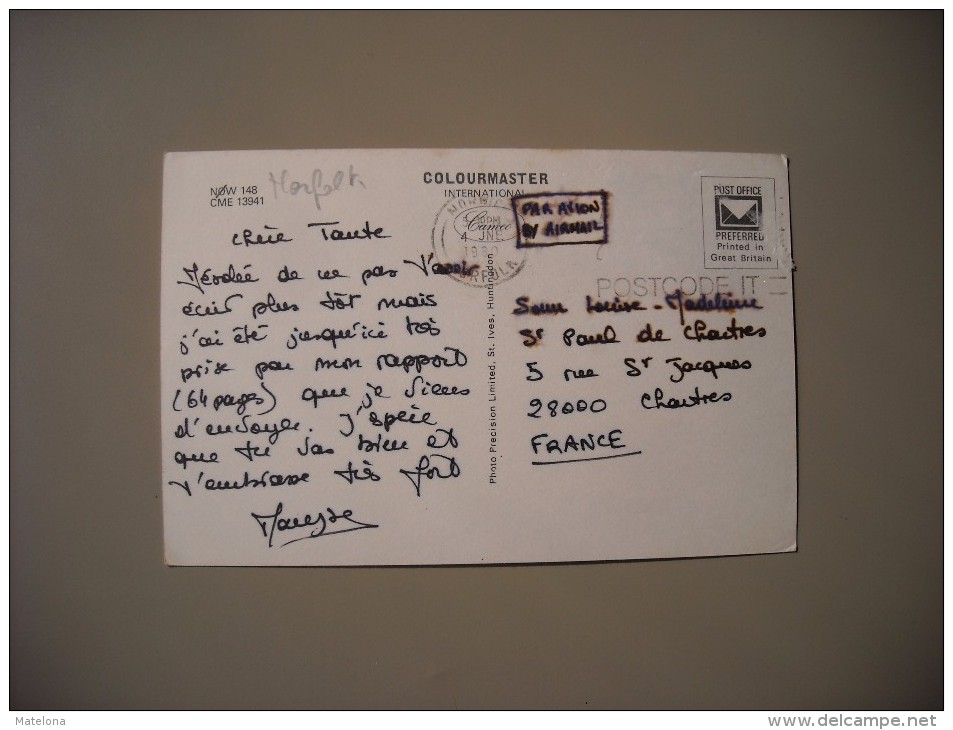 NØW 148
CME 13941
Norfolk
COLOURMASTER
INTERNATIONAL
chère Tante
Désolée de ne pas t'avoir
écrit plus tôt mais
j'ai été jusqu'ici très
prise par mon rapport
(64 pages) que je viens
d'envoyer. J'espère
que tu vas bien et
t'embrasse très fort
Photo Precision Limited, St. Ives, Huntingdon
Cameo
4 JNE
NORFOLK
PAR AVION
BY AIRMAIL
POST OFFICE
PREFERRED
Printed in
Great Britain
POSTCODE IT
Sœur Louise-Madeleine
St Paul de Chartres
5 rue St Jacques
28000 Chartres
FRANCE
Matelona
www.delcampe.net